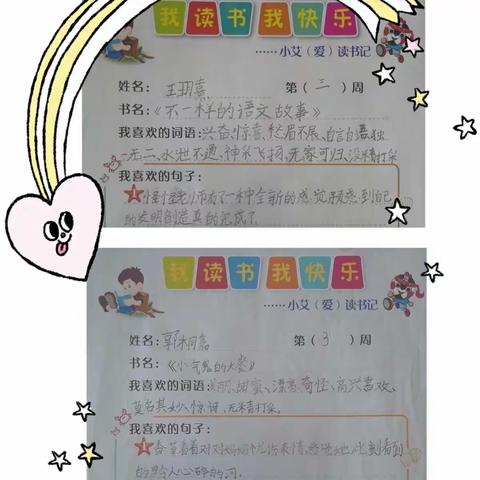 我读书我快乐
……小艾（爱）读书记
姓名：王玥熹 第（三）周
书名：《不一样的语文故事》
我喜欢的词语：兴奋、惊喜、愁眉不展、自言自语、独
一无二、水泄不通、神采飞扬、无家可归、没精打采
我喜欢的句子：
1 怪怪老师有了一种全新的感觉,预感到自己
的发明创造真的完成了
我读书我快乐
……小艾（爱）读书记
姓名：郭桐嘉 第（3）周
书名：《小气鬼的大餐》
我喜欢的词语：美丽、甜蜜、漂亮、奇怪、高兴、喜欢、
莫名其妙、惊讶、无精打采。
我喜欢的句子：
1
的